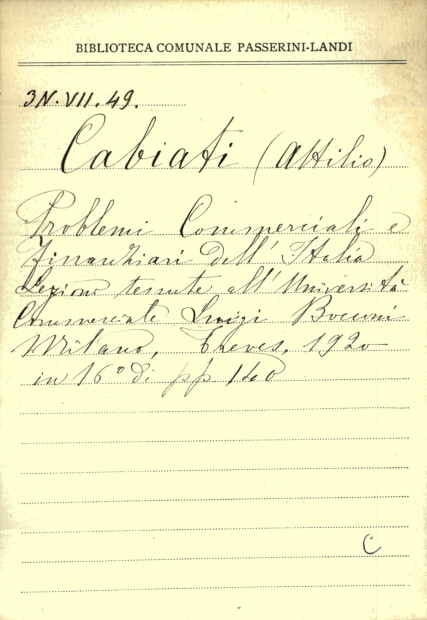 BIBLIOTECA COMUNALE PASSERINI-LANDI
3N.VII.49.
Cabiati (Attilio)
Problemi Commerciali e
finanziari dell'Italia
Lezioni tenute all'Università
Commerciale Luigi Bocconi
Milano, Treves, 1920
in 16° di pp. 140
C